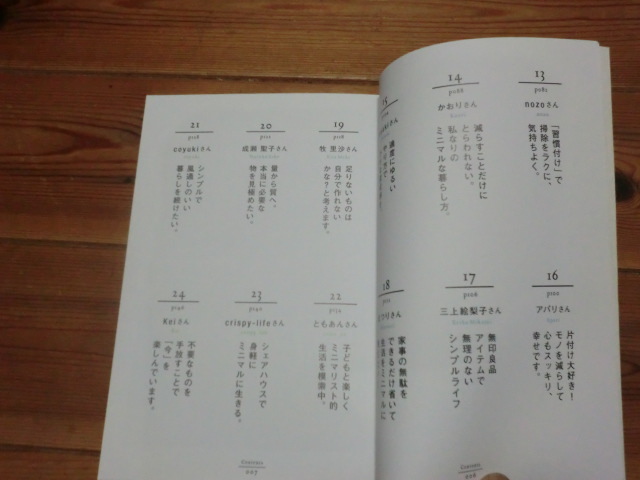 13
nozoさん
「習慣付け」で
掃除をラクに、
気持ちよく。
14
p088
かおりさん
減らすことだけに
とらわれない。
私なりの
ミニマルな暮らし方。
15
16
アパリさん
片付け大好き！
モノを減らして
心もスッキリ、
幸せです。
17
三上絵梨子さん
無印良品
アイテムで
無理のない
シンプルライフ
18
家事の無駄を
できるだけ省いて
19
牧 里沙さん
足りないものは
自分で作れない
かな？と考えます。
20
成瀬 聖子さん
量から質へ。
本当に必要な
物を見極めたい。
21
coyukiさん
シンプルで
風通しのいい
暮らしを続けたい。
22
p134
ともあんさん
子どもと楽しく
ミニマリスト的
生活を模索中。
23
crispy-lifeさん
シェアハウスで
身軽に
ミニマルに生きる。
24
Keiさん
不要なものを
手放すことで
「今」を
楽しんでいます。
Contents
007
Contents
006